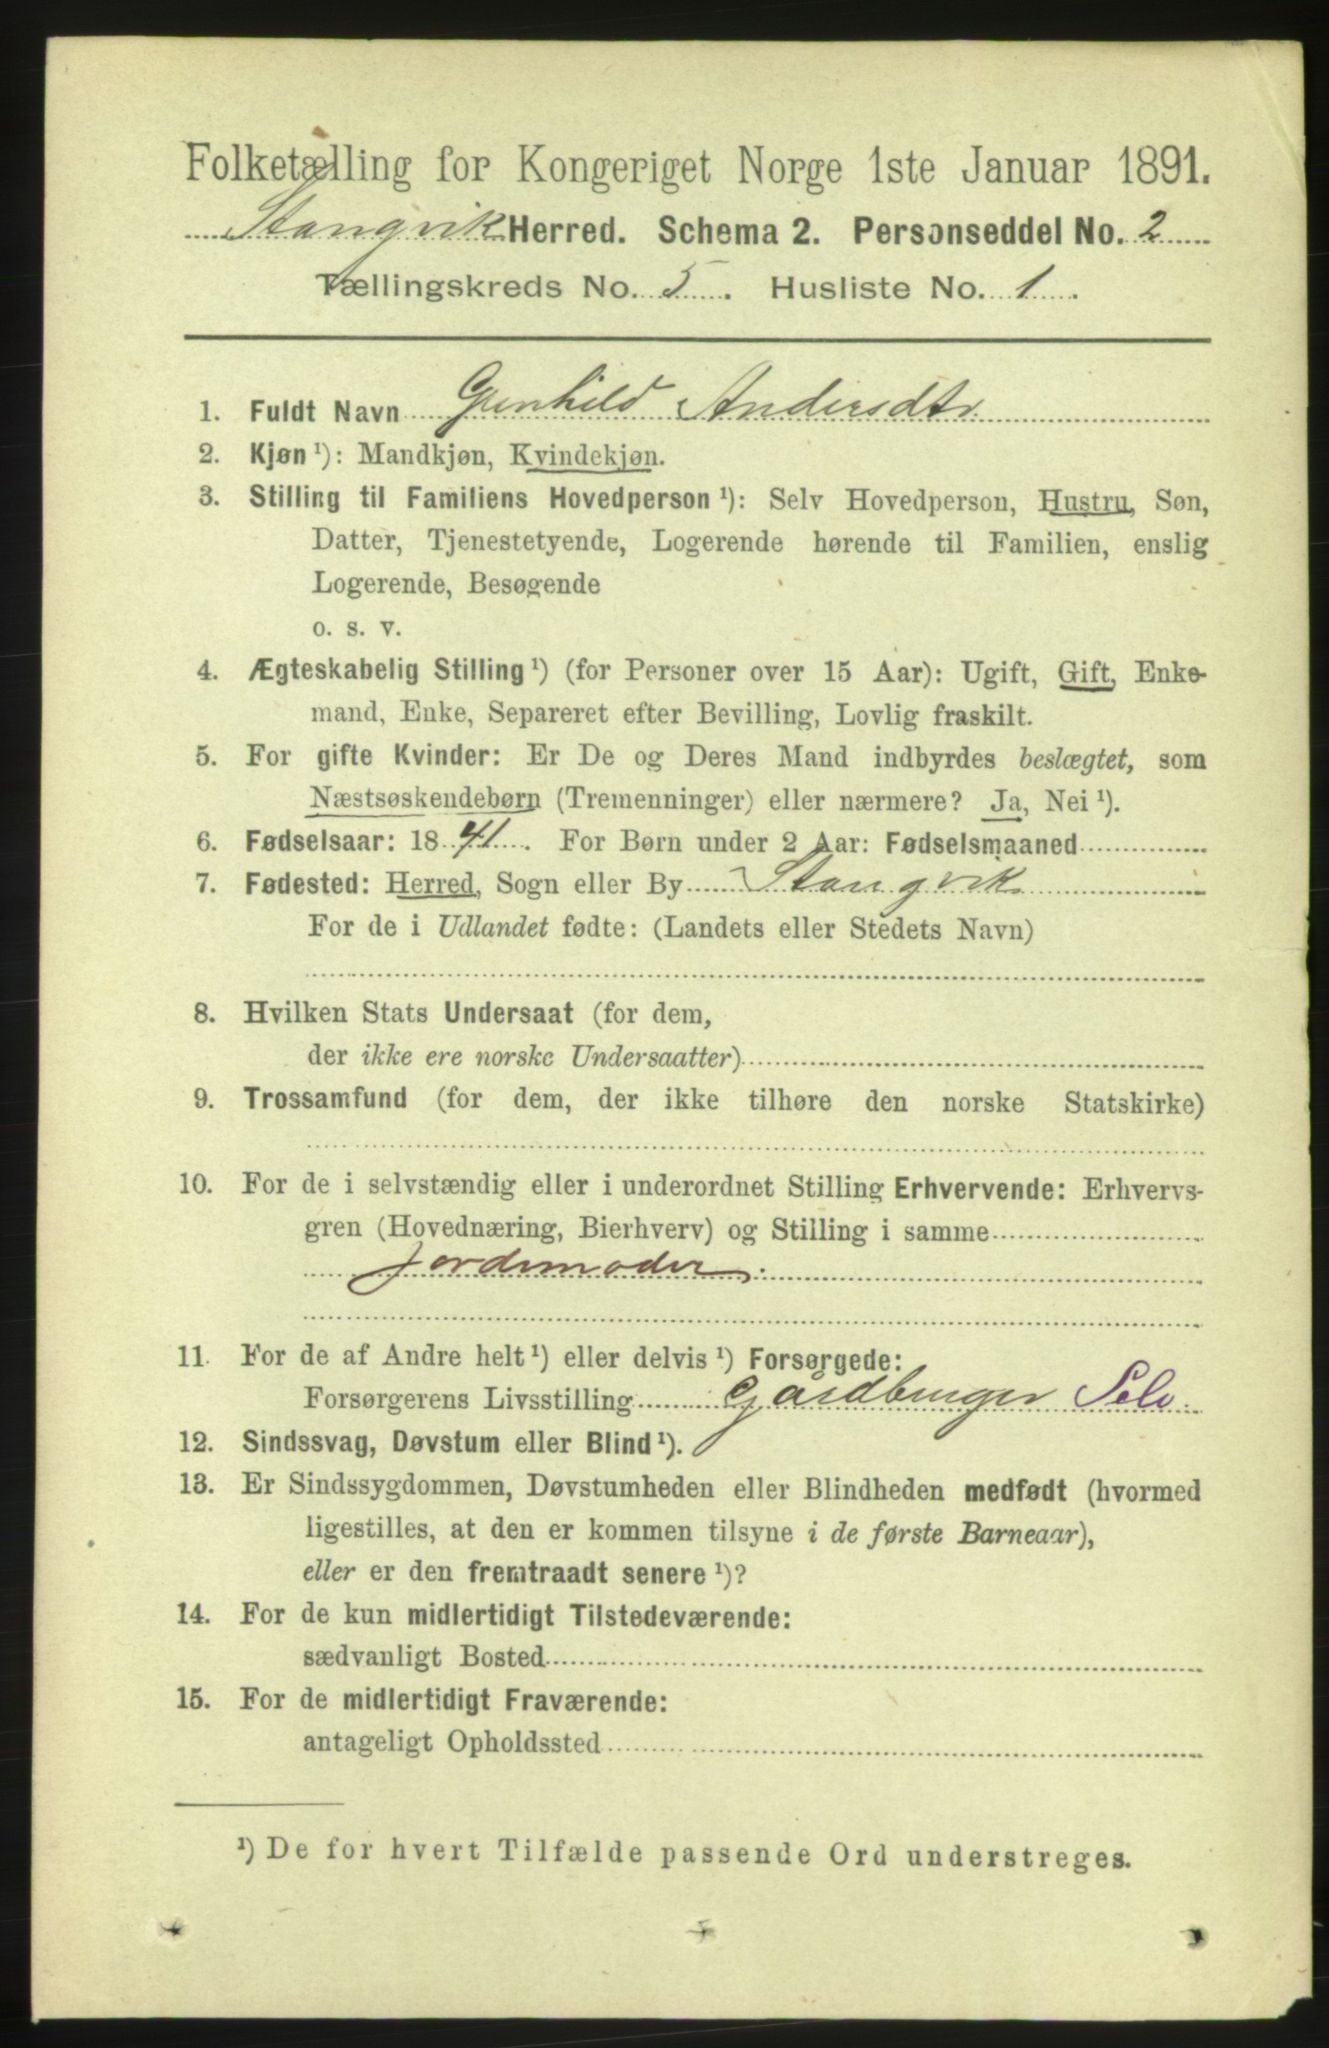 Folketælling for Kongeriget Norge 1ste Januar 1891.
Stangvik Herred. Schema 2. Personseddel No. 2
Tællingskreds No. 5. Husliste No. 1.
1. Fuldt Navn Gunhild Andersdtr.
2. Kjøn ¹): Mandkjøn, Kvindekjøn.
3. Stilling til Familiens Hovedperson ¹): Selv Hovedperson, Hustru, Søn,
Datter, Tjenestetyende, Logerende hørende til Familien, enslig
Logerende, Besøgende
o. s. v.
4. Ægteskabelig Stilling ¹) (for Personer over 15 Aar): Ugift, Gift, Enke-
mand, Enke, Separeret efter Bevilling, Lovlig fraskilt.
5. For gifte Kvinder: Er De og Deres Mand indbyrdes beslægtet, som
Næstsøskendebørn (Tremenninger) eller nærmere? Ja, Nei ¹).
6. Fødselsaar: 1841. For Børn under 2 Aar: Fødselsmaaned
7. Fødested: Herred, Sogn eller By Stangvik
For de i Udlandet fødte: (Landets eller Stedets Navn)
8. Hvilken Stats Undersaat (for dem,
der ikke ere norske Undersaatter)
9. Trossamfund (for dem, der ikke tilhøre den norske Statskirke)
10. For de i selvstændig eller i underordnet Stilling Erhvervende: Erhvervs-
gren (Hovednæring, Bierhverv) og Stilling i samme
Jordemoder.
11. For de af Andre helt ¹) eller delvis ¹) Forsørgede:
Forsørgerens Livsstilling Gårdbruger Selv
12. Sindssvag, Døvstum eller Blind ¹).
13. Er Sindssygdommen, Døvstumheden eller Blindheden medfødt (hvormed
ligestilles, at den er kommen tilsyne i de første Barneaar),
eller er den fremtraadt senere ¹)?
14. For de kun midlertidigt Tilstedeværende:
sædvanligt Bosted
15. For de midlertidigt Fraværende:
antageligt Opholdssted
¹) De for hvert Tilfælde passende Ord understreges.